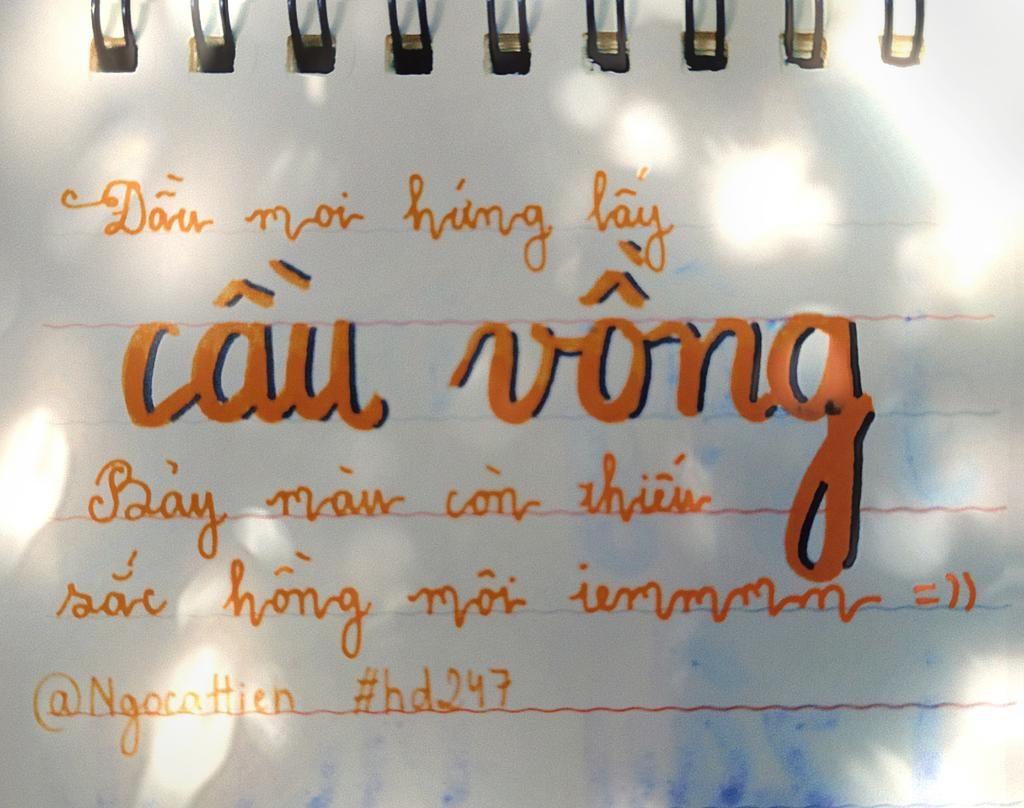 Dẫu moi hứng lấy
cầu vồng
Bảy màu còn thiếu
sắc hồng môi iemmmm =))
@Ngocattien #hd247